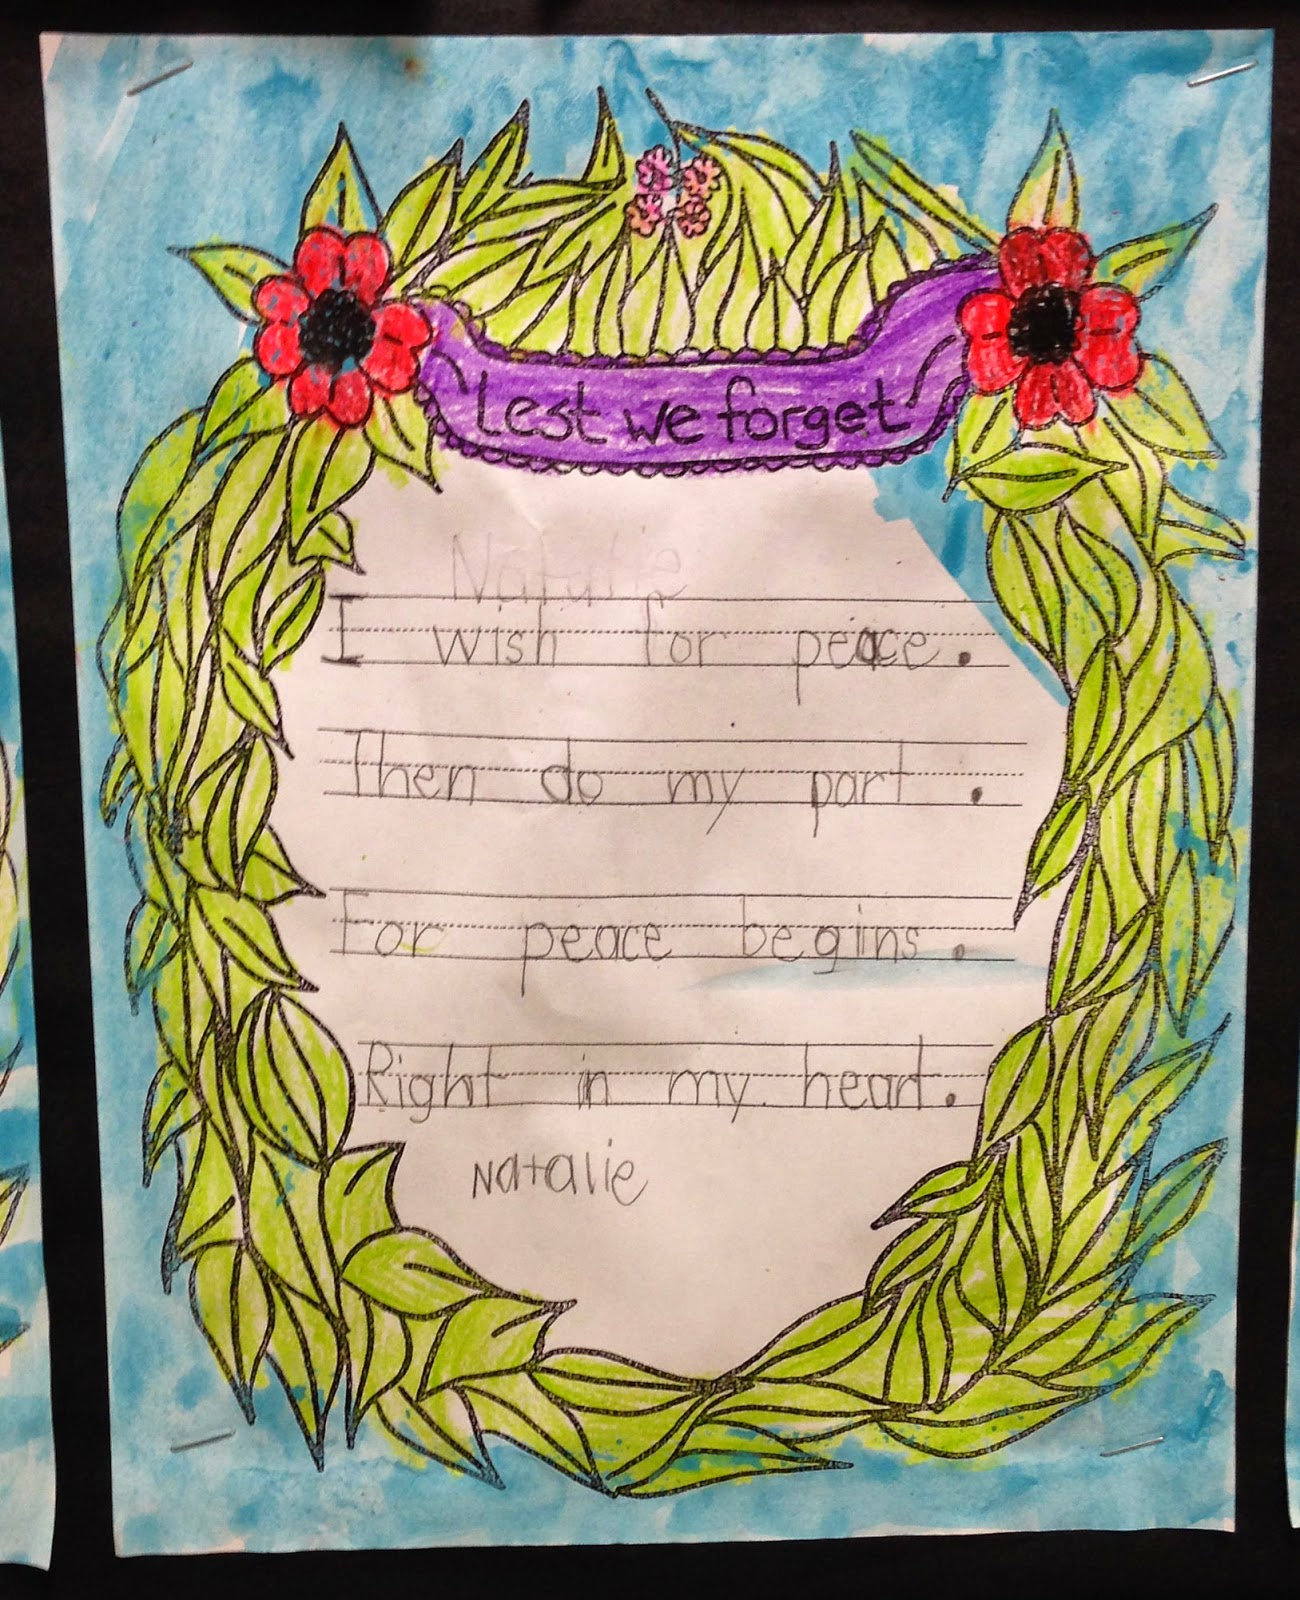 Lest we forget
Natalie
I wish for peace.
Then do my part.
For peace begins.
Right in my heart.
Natalie